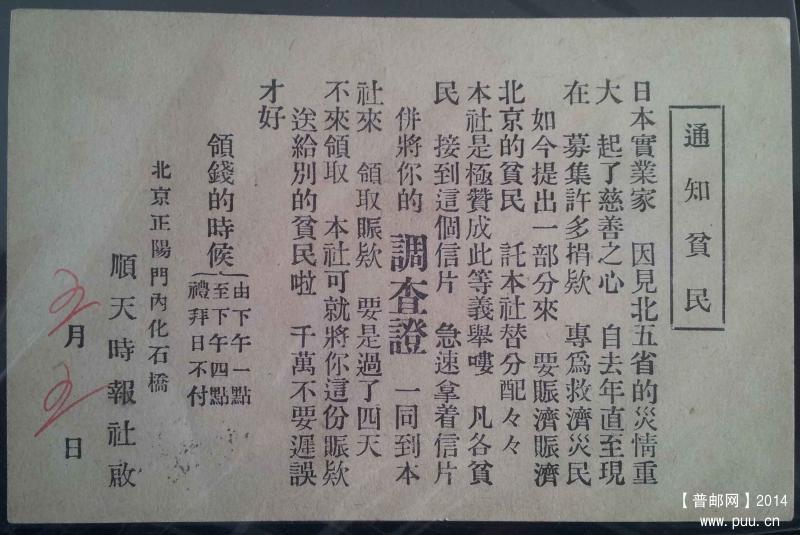 通知貧民
日本實業家　因見北五省的災情重
大　起了慈善之心　自去年直至現
在　募集許多捐欵　專爲救濟災民
如今提出一部分來　要賑濟賑濟
北京的貧民　託本社替分配々々
本社是極贊成此等義舉嘍　凡各貧
民　接到這個信片　急速拿着信片
併將你的　調查證　一同到本
社來　領取賑欵　要是過了四天
不來領取　本社可就將你這份賑欵
送給別的貧民啦　千萬不要遲誤
才好
領錢的時候
由下午一點
至下午四點
禮拜日不付
北京正陽門內化石橋
順天時報社啟
五月五日
【普邮网】2014
www.puu.cn